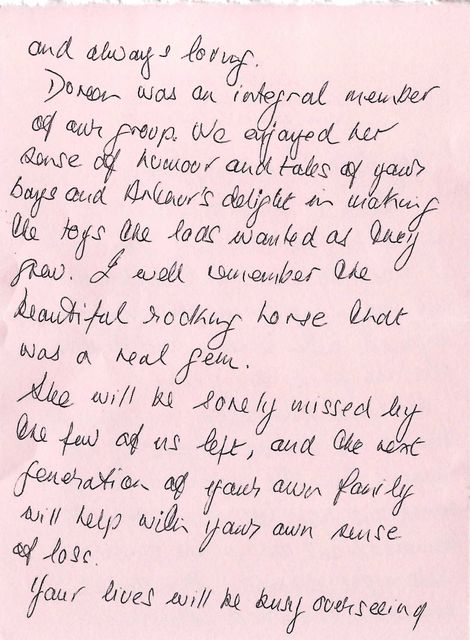 and always loving.
Doreen was an integral member
of our group. We enjoyed her
sense of humour and tales of your
boys and Arthur's delight in making
the toys the lads wanted as they
grew. I well remember the
beautiful rocking horse that
was a real gem.
She will be sorely missed by
the few of us left, and the next
generation of your own family
will help with your own sense
of loss.
Your lives will be busy overseeing